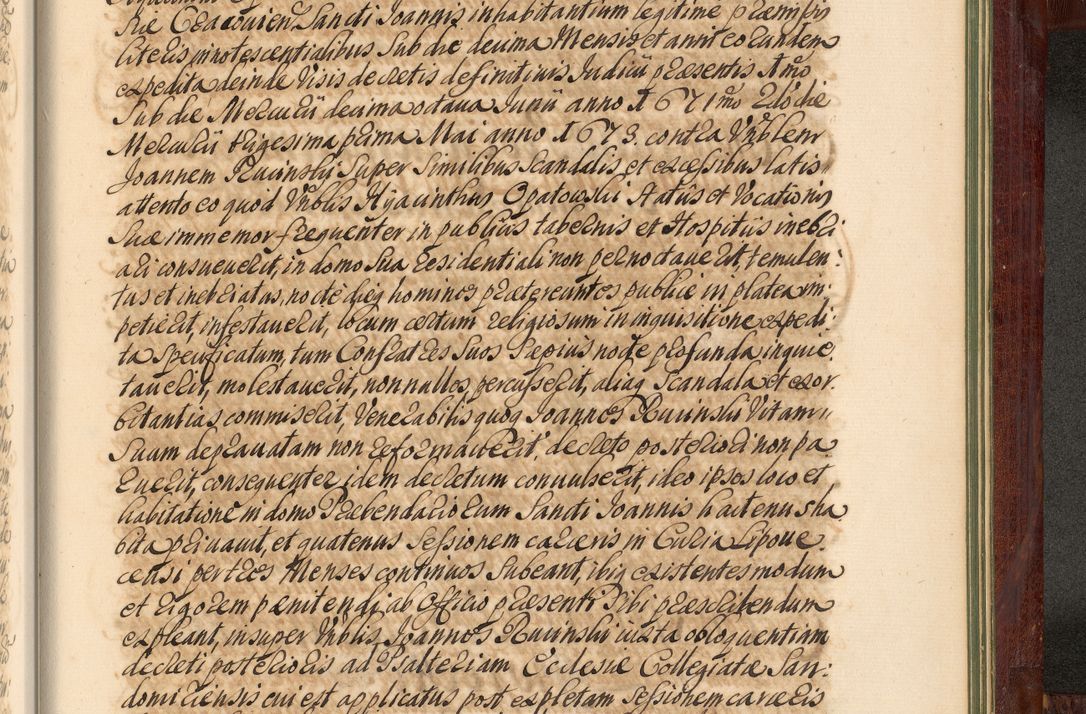 riæ Cracovien Sancti Joannis inhabitantium legitime præmissis
literis innotescentialibus sub die decima Mensis et anni eorundem
expedita deinde Visis decretis definitivis Judicii præsentis Imo
sub die Mercurii decima octava Junii anno 1671mo 2do die
Mercurii trigesima prima Mai anno 1673. contra Vnblem
Joannem Rucinski super similibus scandalis et excessibus latis
attento eo quod Vnblis Hyacinthus Opatowski status et vocationis
suæ immemor frequenter in publicis tabernis et Hospitiis inebri
ari consueverit, in domo sua residentiali non pernoctaverit, temulen:
tus et inebriatus, nocte dieq homines prætereuntes publice in platea im:
petierit, infestaverit, locum certum religiosum in inquisitione expedi
ta specificatum, tum Confratres suos sæpius nocte profunda inquie
taverit, molestaverit, nonnullos, percusserit, aliaq scandala et exor
bitantias commiserit, Venerabilis quoq Joannes Rucinski Vitam
suam depravatam non reformaverit, decreto posteriori non pa
ruerit, consequenter idem decretum convulserit, ideo ipsos loco et
habitatione in domo Præbendariorum Sancti Joannis hactenus ha
bita privavit, et quatenus sessionem carceris in Curia Lipove
censi per tres Menses continuos subeant, ibiq existentes modum
et rigorem pænitendi, ab Officio præsenti sibi præscribendum
expleant, insuper Vnblis Joannes Rucinski iuxta obloquentiam
decreti posterioris ad Psalteriam Ecclesiæ Collegiatæ San:
domiriensis cui est applicatus post expletam sessionem carceris